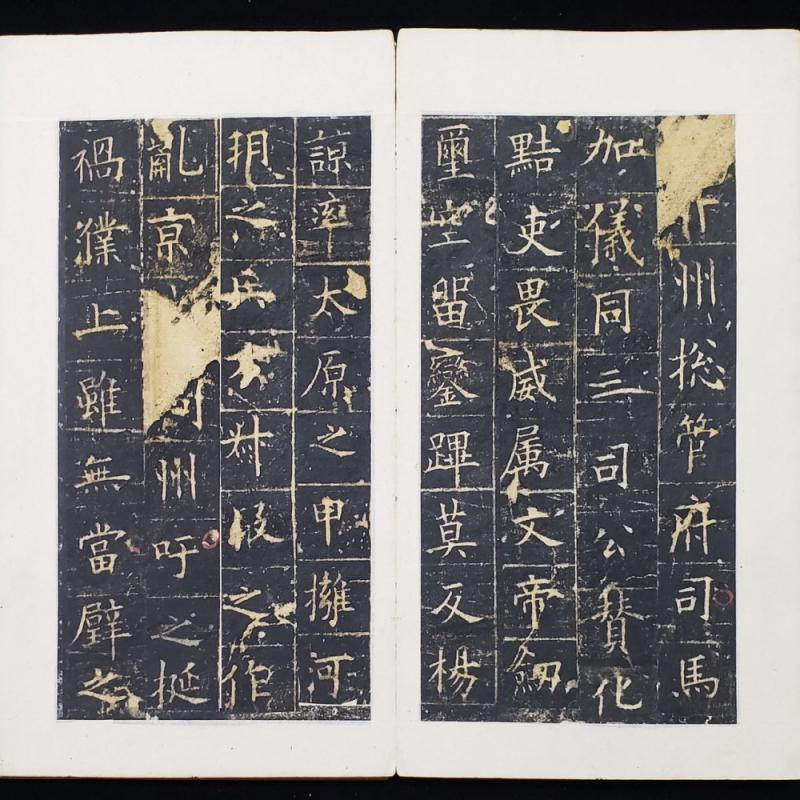 州揔管府司馬
加儀同三司公賛化
黠吏畏威属文帝劒
璽空留鑾蹕莫反楊
諒率太原之甲擁河
朔之兵方叔段之作
亂京州吁之挺
禍濮上雖無當璧之